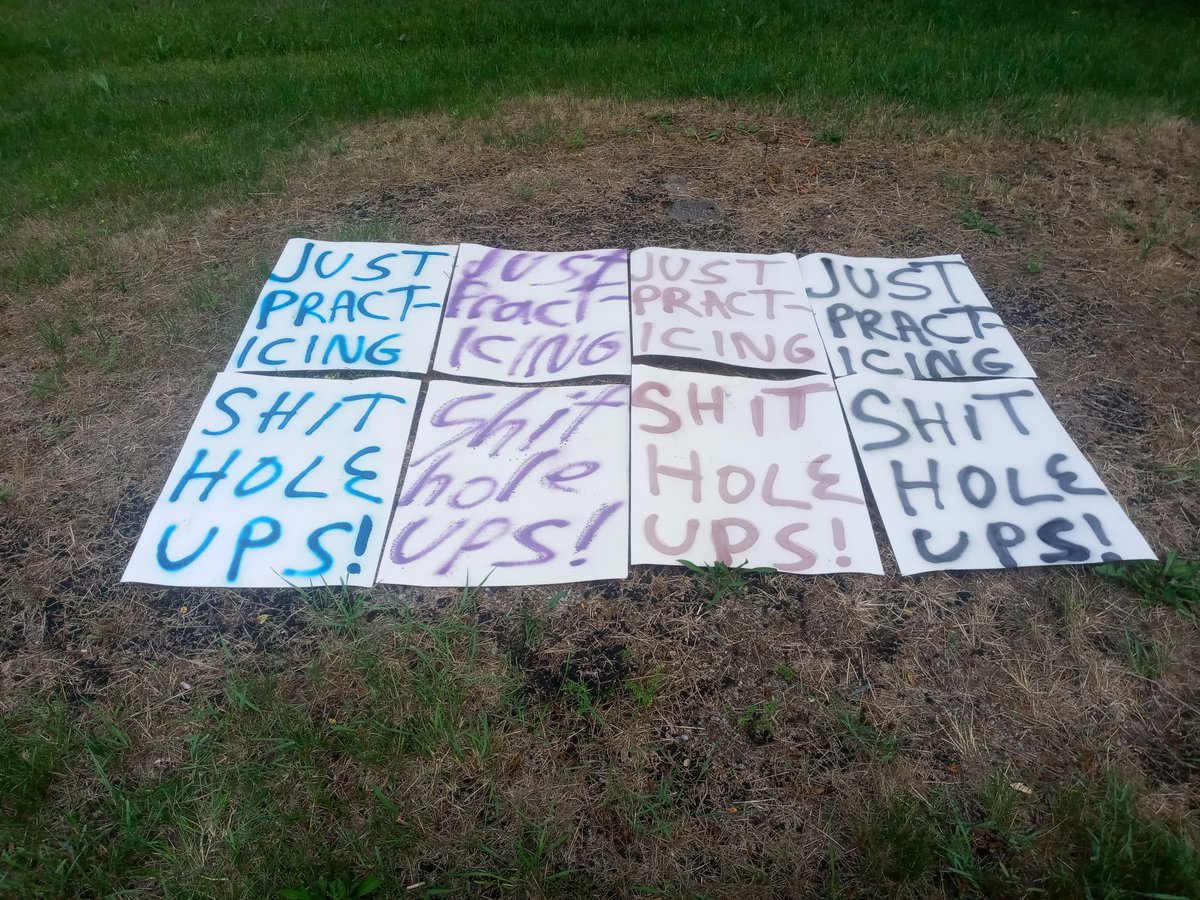 JUST
PRACT-
ICING
JUST
Pract-
ICING
JUST
PRACT-
ICING
JUST
PRACT-
ICING
SHIT
HOLE
UPS!
Shit
hole
UPS!
SHIT
HOLE
UPS!
SHIT
HOLE
UPS!